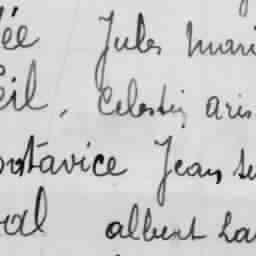 ée Jules Mari
eil, Celestin aris
ostavice Jean
al albert